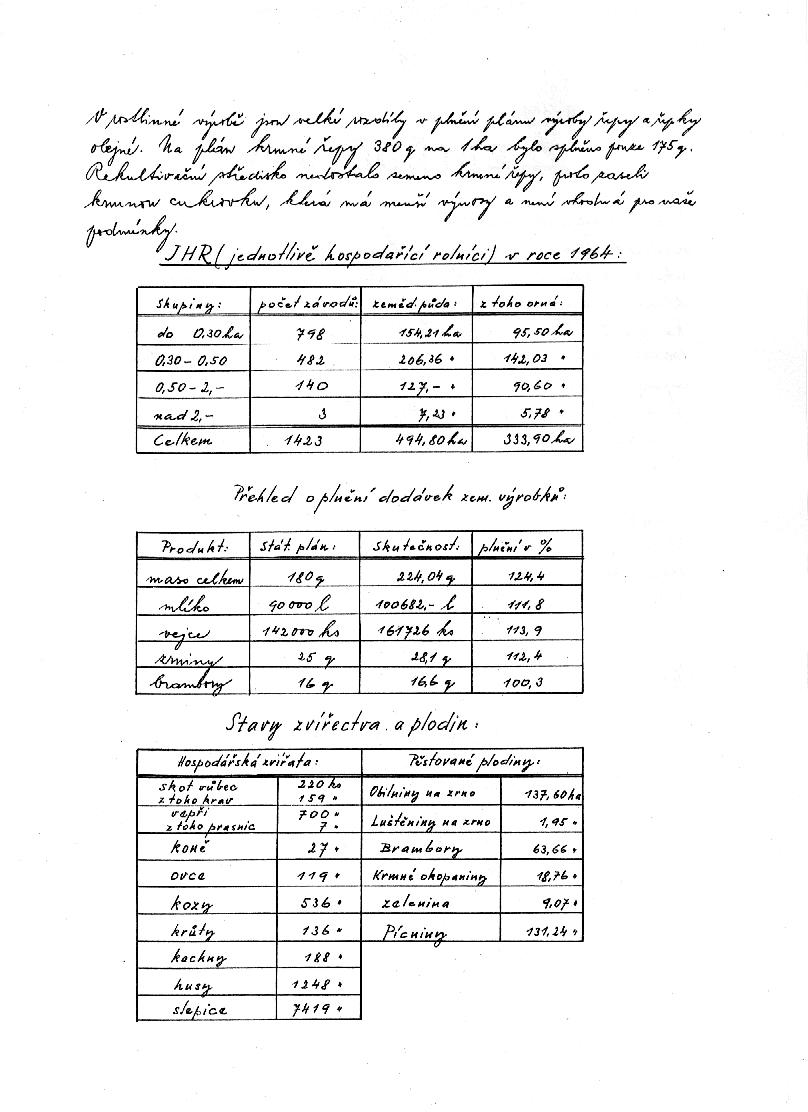 V rostlinné výrobě jsou velké rozdíly v plnění plánu výroby řepy a řepky
olejné. Na plán krmné řepy 380 q na 1 ha bylo splněno pouze 175 q.
Rekultivační středisko nedostalo semeno krmné řepy, proto zaseli
krmnou cukrovku, která má menší výnosy a není vhodná pro naše
podmínky.
JHR (jednotlivě hospodařící rolníci) v roce 1964:
Skupiny: počet závodů: zeměd. půda: z toho orná:
do 0,30 ha 798 154,21 ha 95,50 ha
0,30 - 0,50 482 206,36 " 142,03 "
0,50 - 2,- 140 127,- " 90,60 "
nad 2,- 3 7,23 " 5,78 "
Celkem 1423 494,80 ha 333,90 ha
Přehled o plnění dodávek zem. výrobků:
Produkt: Stát. plán: Skutečnost: plnění v %
maso celkem 180 q 224,04 q 124,4
mlíko 90 000 l 100682,- l 111,8
vejce 142000 ks 161726 ks 113,9
zrniny 25 q 28,1 q 112,4
brambory 16 q 16,6 q 100,3
Stavy zvířectva a plodin:
Hospodářská zvířata: Pěstované plodiny:
skot vůbec 220 ks
z toho krav 159 "
Obilniny na zrno 137,60 ha
vepři 700 "
z toho prasnic 7 "
Luštěniny na zrno 1,95 "
koně 27 " Brambory 63,66 "
ovce 119 " Krmné okopaniny 18,76 "
kozy 536 " zelenina 9,07 "
krůty 136 " Pícniny 131,24 "
kachny 188 "
husy 1248 "
slepice 7419 "